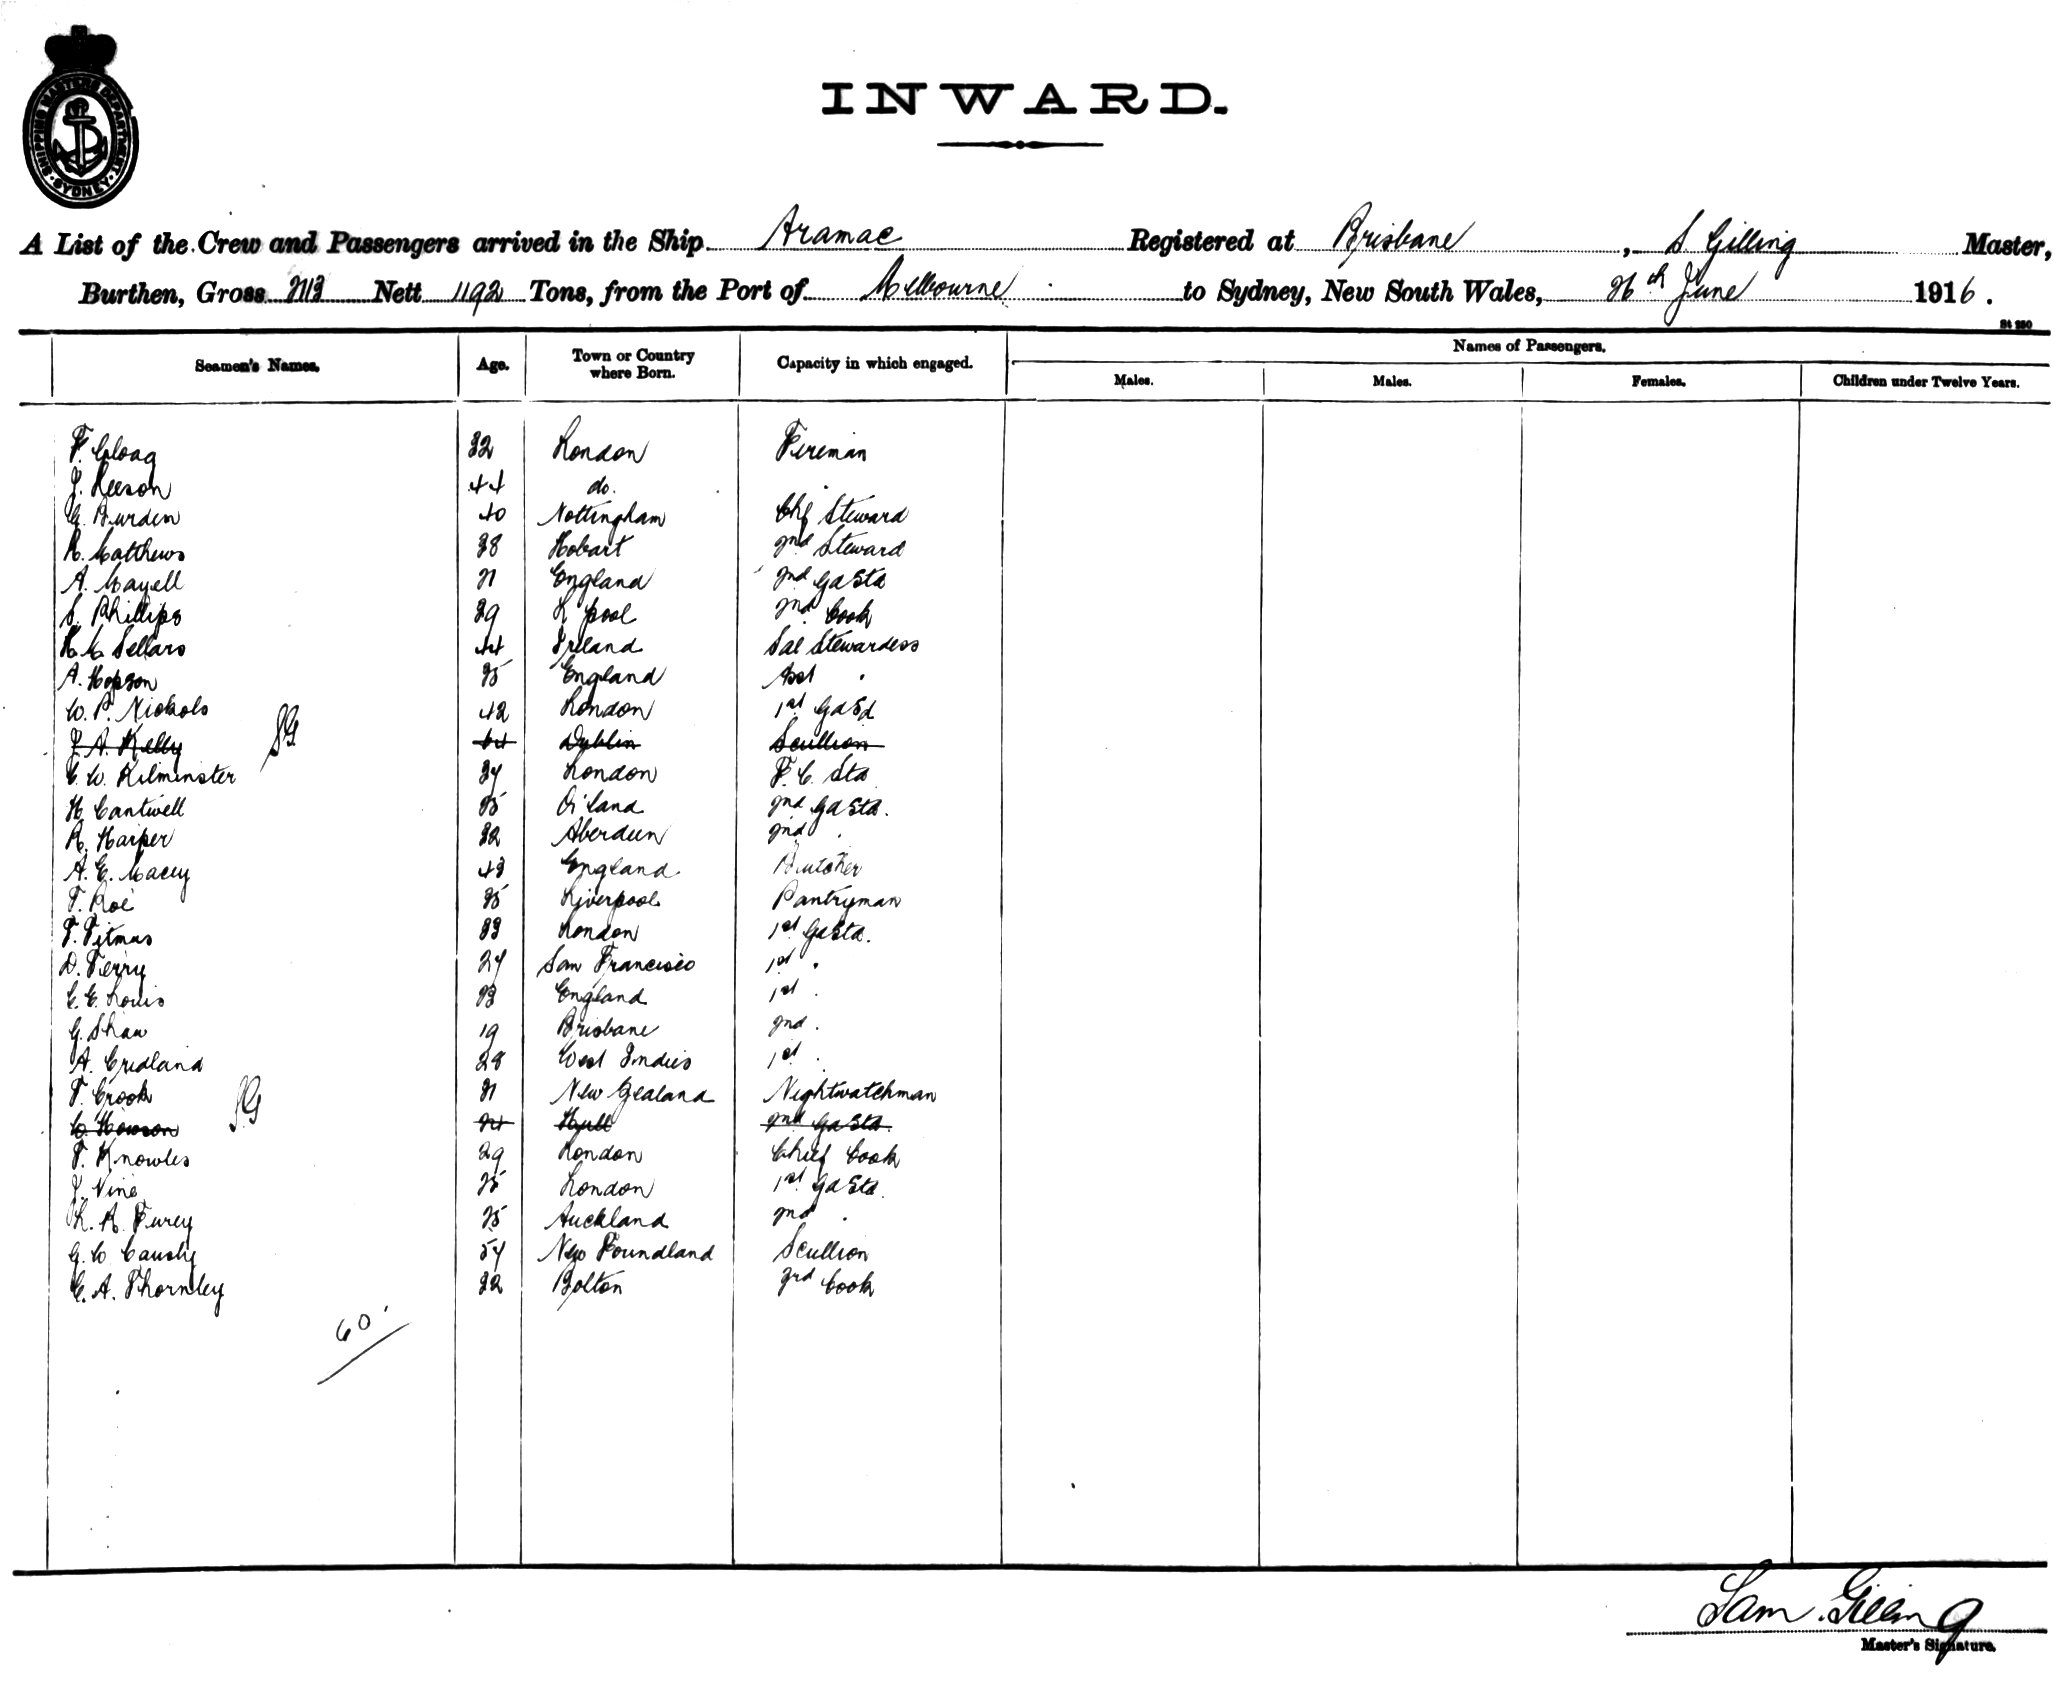 SHIPPING MASTER'S DEPARTMENT SYDNEY
INWARD.
A List of the Crew and Passengers arrived in the Ship Aramac Registered at Brisbane, S Gilling Master,
Burthen, Gross 2113 Nett 1192 Tons, from the Port of Melbourne to Sydney, New South Wales, 26th June 1916.
St 250
Seamen's Names. Age. Town or Country where Born. Capacity in which engaged. Names of Passengers.
Males. Males. Females. Children under Twelve Years.
F. Gloag 32 London Fireman
J. Leeson 44 do. "
G. Burden 40 Nottingham Chf Steward
R. Matthews 38 Hobart 2nd Steward
A. Mayell 21 England 2nd Ga Std
S. Phillips 39 L'pool 2nd Cook
H. M Sellars 44 Ireland Sal Stewardess
A. Hopson 35 England Asst "
W. P. Nickols 42 London 1st Ga Sd
J. A. Kelly Dublin Scullion
SG
C. W. Kilminster 34 London F. C. Std
H Cantwell 25 2nd Ga Std.
R. Harper 32 Aberdeen 2nd "
A. E. Macey 43 England Butcher
T. Roe 25 Liverpool Pantryman
F. Titmus 33 London 1st Ga Std.
D. Terry 24 San Francisco 1st "
C. E. Louis 23 England 1st "
G. Shaw 19 Brisbane 2nd "
A. Cridland 28 West Indies 1st "
F. Crook 21 New Zealand Nightwatchman
SG
C. Howson 24 Hull 2nd Ga Std.
F. Knowles 29 London Chief Cook
J. Vine 25 London 1st Ga Std.
L. A. Furey 25 Auckland 2nd "
G. W Causby 54 New Foundland Scullion
C. A. Thornley 22 Bolton 3rd Cook
60
Sam. Gilling
Master's Signature.